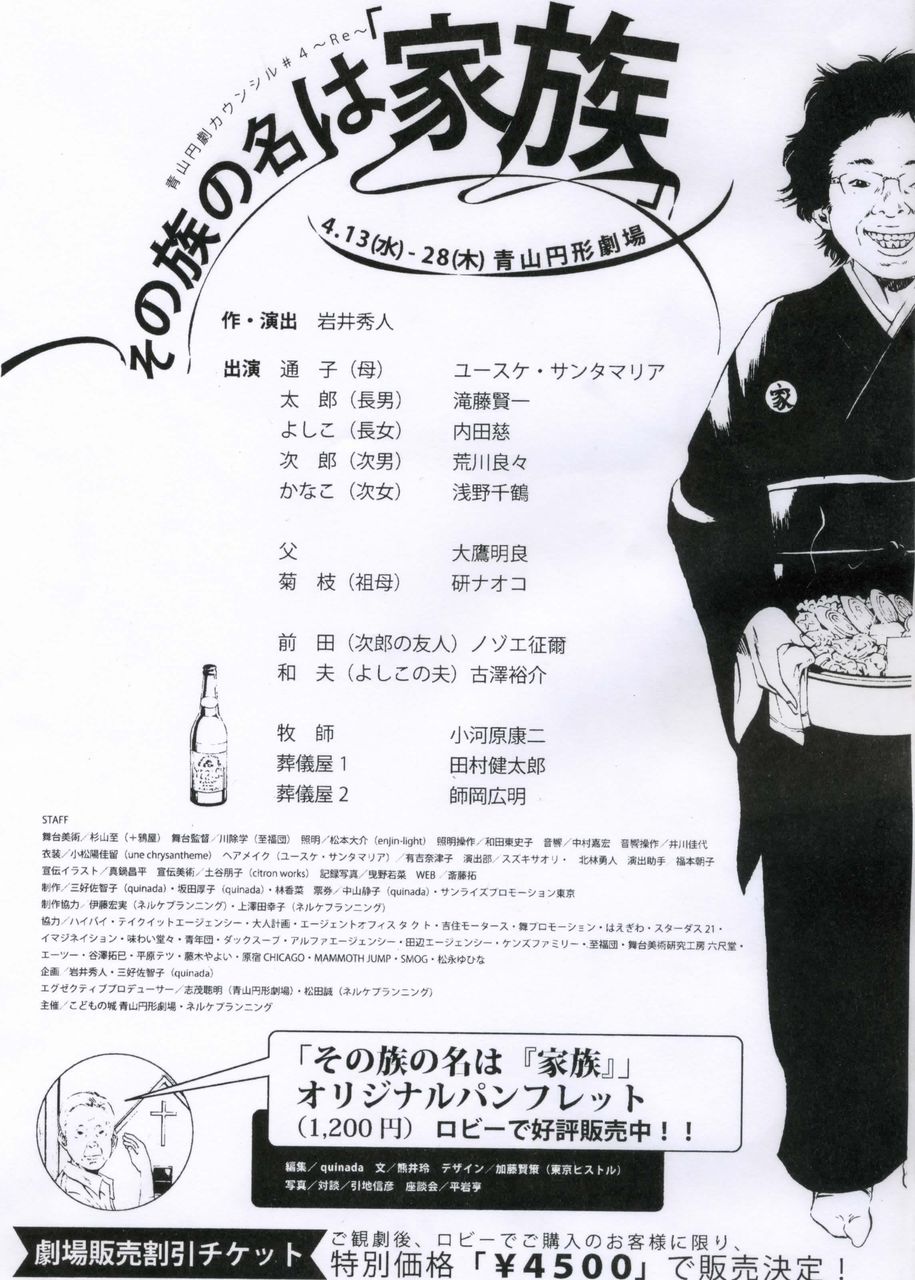 青山円劇カウンシル#4〜Re〜
その族の名は「家族」
4.13(水) - 28(木) 青山円形劇場
作・演出 岩井秀人
出演 通 子(母) ユースケ・サンタマリア
太 郎(長男) 滝藤賢一
よしこ(長女) 内田慈
次 郎(次男) 荒川良々
かなこ(次女) 浅野千鶴
父 大鷹明良
菊 枝(祖母) 研ナオコ
前 田(次郎の友人) ノゾエ征爾
和 夫(よしこの夫) 古澤裕介
牧 師 小河原康二
葬儀屋1 田村健太郎
葬儀屋2 師岡広明
家
STAFF
舞台美術/杉山至(+鴉屋) 舞台監督/川除学(至福団) 照明/松本大介(enjin-light) 照明操作/和田東史子 音響/中村嘉宏 音響操作/井川佳代
衣装/小松陽佳留(une chrysantheme) ヘアメイク(ユースケ・サンタマリア)/有吉奈津子 演出部/スズキサオリ・ 北林勇人 演出助手 福本朝子
宣伝イラスト/真鍋昌平 宣伝美術/土谷朋子(citron works) 記録写真/曳野若菜 WEB/斎藤拓
制作/三好佐智子(quinada)・坂田厚子(quinada)・林香菜 票券/中山静子(quinada)・サンライズプロモーション東京
制作協力/伊藤宏実(ネルケプランニング)・上澤田幸子(ネルケプランニング)
協力/ハイバイ・テイクイットエージェンシー・大人計画・エージェントオフィス タクト・吉住モータース・舞プロモーション・はえぎわ・スターダス21・
イマジネイション・味わい堂々・青年団・ダックスープ・アルファエージェンシー・田辺エージェンシー・ケンズファミリー・至福団・舞台美術研究工房 六尺堂・
エーツー・谷澤拓巳・平原テツ・藤木やよい・原宿CHICAGO・MAMMOTH JUMP・SMOG・松永ゆひな
企画/岩井秀人・三好佐智子(quinada)
エグゼクティブプロデューサー/志茂聰明(青山円形劇場)・松田誠(ネルケプランニング)
主催/こどもの城 青山円形劇場・ネルケプランニング
「その族の名は『家族』」
オリジナルパンフレット
(1,200円) ロビーで好評販売中!!
編集/quinada 文/熊井玲 デザイン/加藤賢策(東京ピストル)
写真/対談/引地信彦 座談会/平岩享
劇場販売割引チケット
ご観劇後、ロビーでご購入のお客様に限り、
特別価格「¥4500」で販売決定!